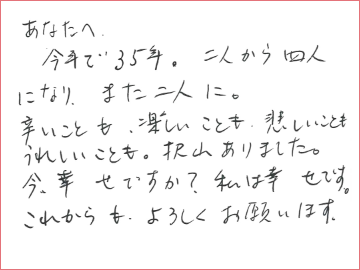 あなたへ.
今年で35年。二人から四人
になり、また二人に。
辛いことも、楽しいことも、悲しいことも
うれしいことも。沢山ありました。
今、幸せですか？私は幸せです。
これからも、よろしくお願いします。